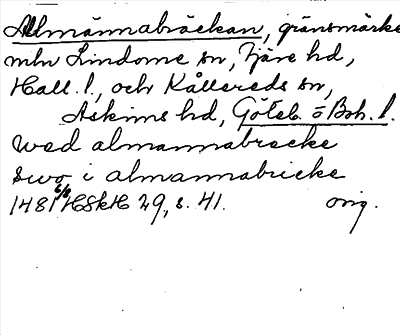 Almännabräckan, gränsmärke
mln Lindome sn, Fjäre hd,
Hall. l., och Kållereds sn,
Askims hd, Göteb. o Boh. l.
wed almannabrecke
swo i almannabricke
1481 6/8 HSkH 29, s. 41. orig.